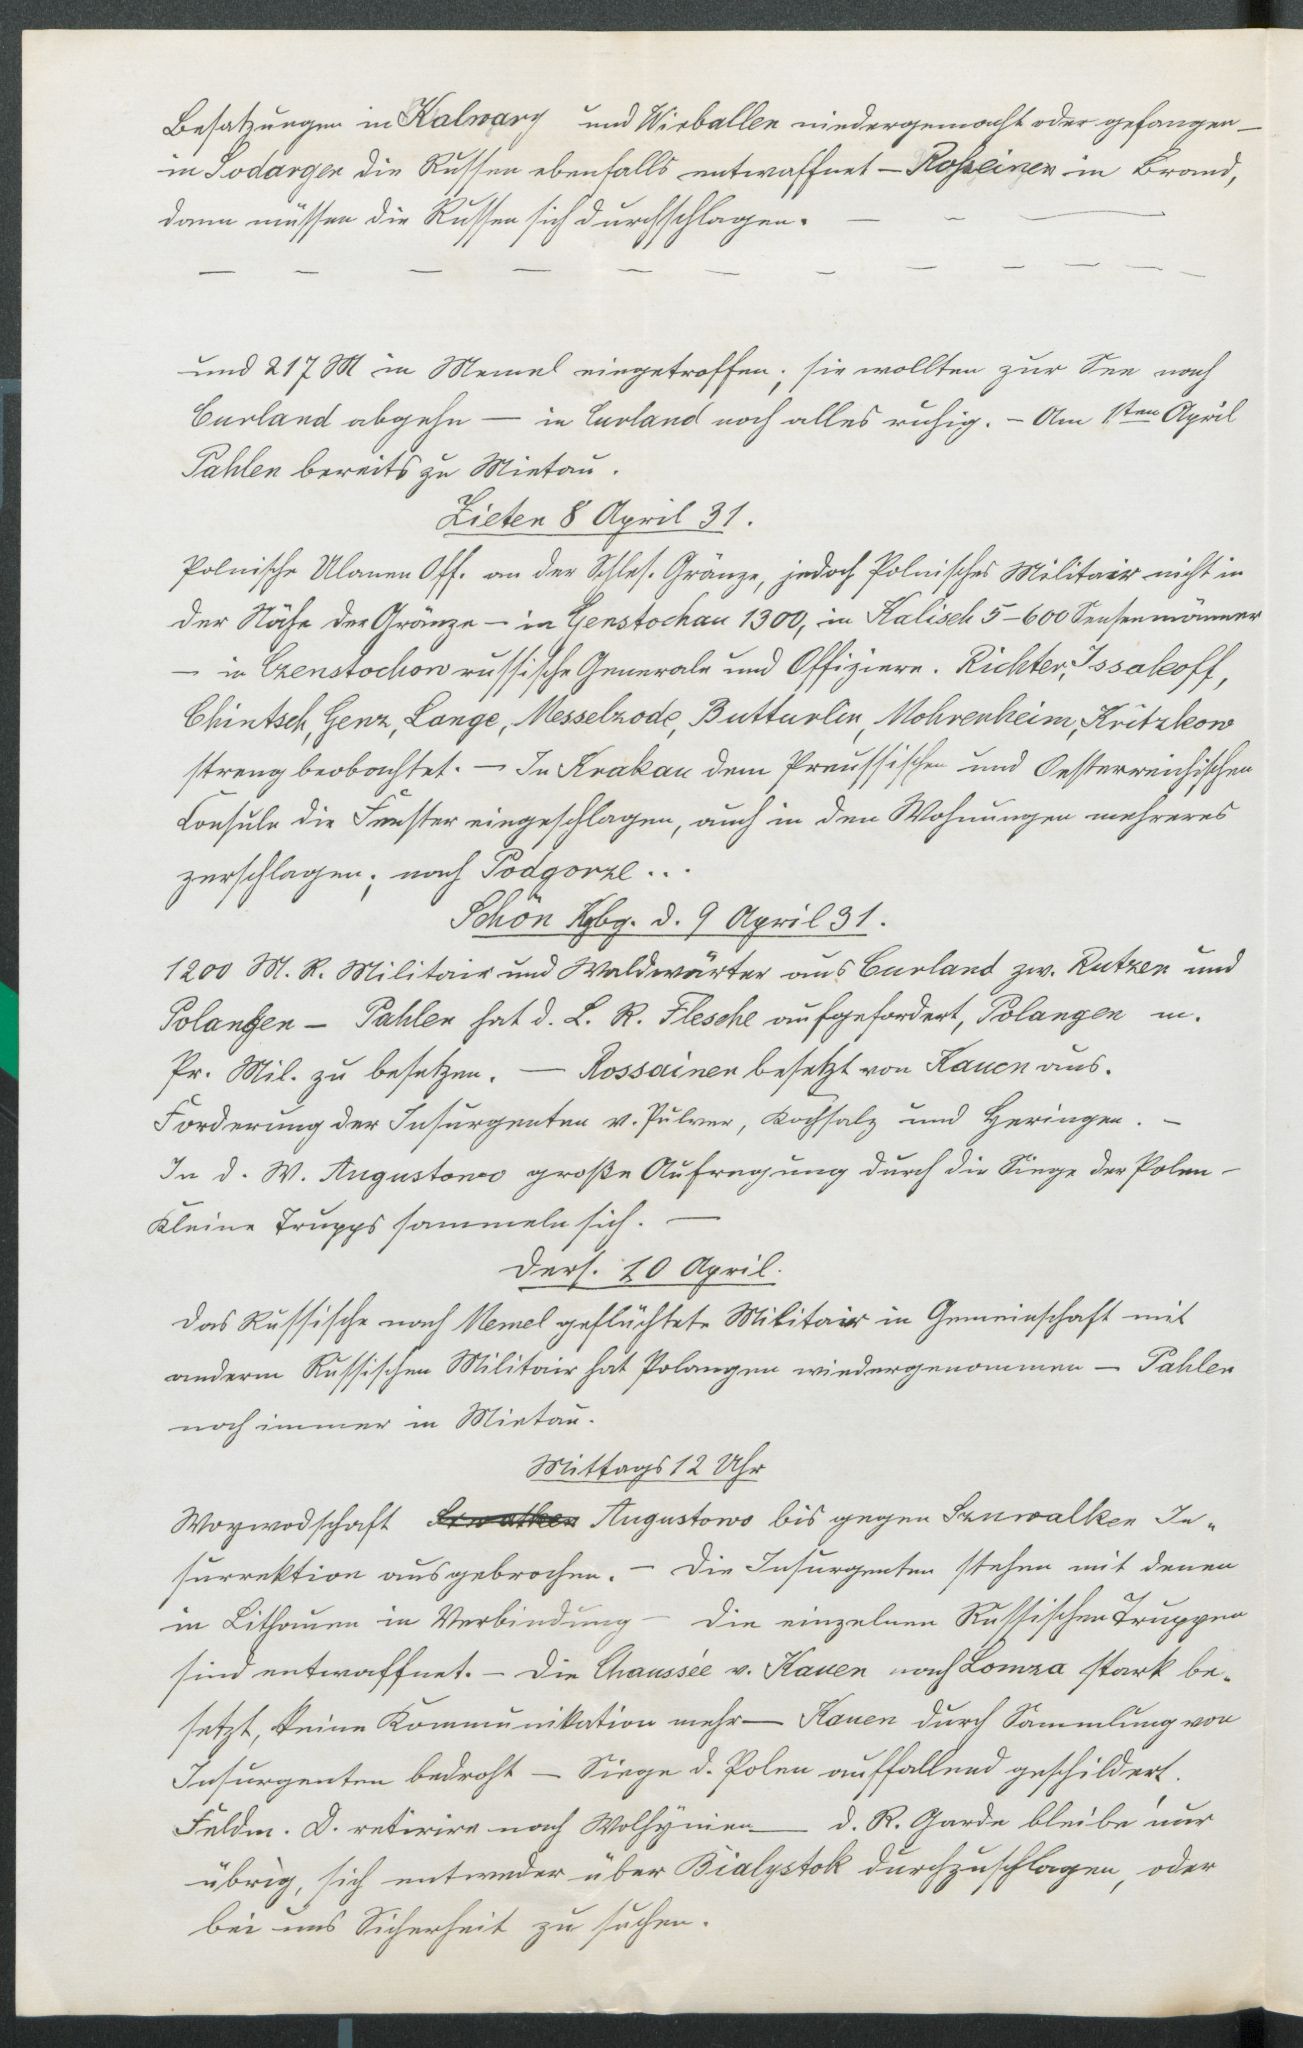 Besatzungen in Kalwary und Wirballen niedergemacht oder gefangen –
in Sodargen die Russen ebenfalls entwaffnet – Roßeinen in Brand,
dann müssen die Russen sich durchschlagen. — – —
— – — — – – – — – – — –
und 217 M in Memel eingetroffen; sie wollten zur See nach
Curland abgehn — in Curland noch alles ruhig. – Am 1ten April
Pahlen bereits zu Mietau.
Zieten 8 April 31.
Polnische Ulanen Off. an der Schles. Gränze, jedoch Polnisches Militair nicht in
der Nähe der Gränze – in Czenstochau 1300, in Kalisch 5–600 Sensenmänner
– in Czenstochow russische Generale und Offiziere. Richter, Issakoff,
Chintsch, Genz, Lange, Messelrode, Butturlin, Mohrenheim, Kritzkow
streng beobachtet. – In Krakau dem Preussischen und Oesterreichischen
Consuln die Fenster eingeschlagen, auch in den Wohnungen mehreres
zerschlagen; nach Podgorze...
Schön Kgbg. d. 9 April 31.
1200 M. R. Militair und Waldwärter aus Curland zw. Rutzen und
Polangen – Pahlen hat d. L. R. Flesche aufgefordert, Polangen m.
Pr. Mil. zu besetzen. — Rossainen besetzt von Kauen aus.
Forderung der Insurgenten v. Pulver, Kochsalz und Heringen. –
In d. W. Augustowo große Aufregung durch die Siege der Polen –
Kleine Trupps sammeln sich. —
Ders. 10 April.
Das Russische nach Memel geflüchtete Militair in Gemeinschaft mit
anderm Russischen Militair hat Polangen wiedergenommen – Pahlen
noch immer in Mietau.
Mittags 12 Uhr
Woywodschaft Augustowo bis gegen Szuwalken In-
surrektion ausgebrochen. – Die Insurgenten stehen mit denen
in Lithauen in Verbindung – Die einzelnen Russischen Truppen
sind entwaffnet. – Die Chaussée v. Kauen nach Lomza stark be-
setzt, keine Kommunikation mehr — Kauen durch Sammlung von
Insurgenten bedroht – Siege d. Polen auffallend geschildert.
Feldm. D. retirire nach Wolhynien — d. R. Garde bleibe nur
übrig, sich entweder über Bialystok durchzuschlagen, oder
bei uns Sicherheit zu suchen.